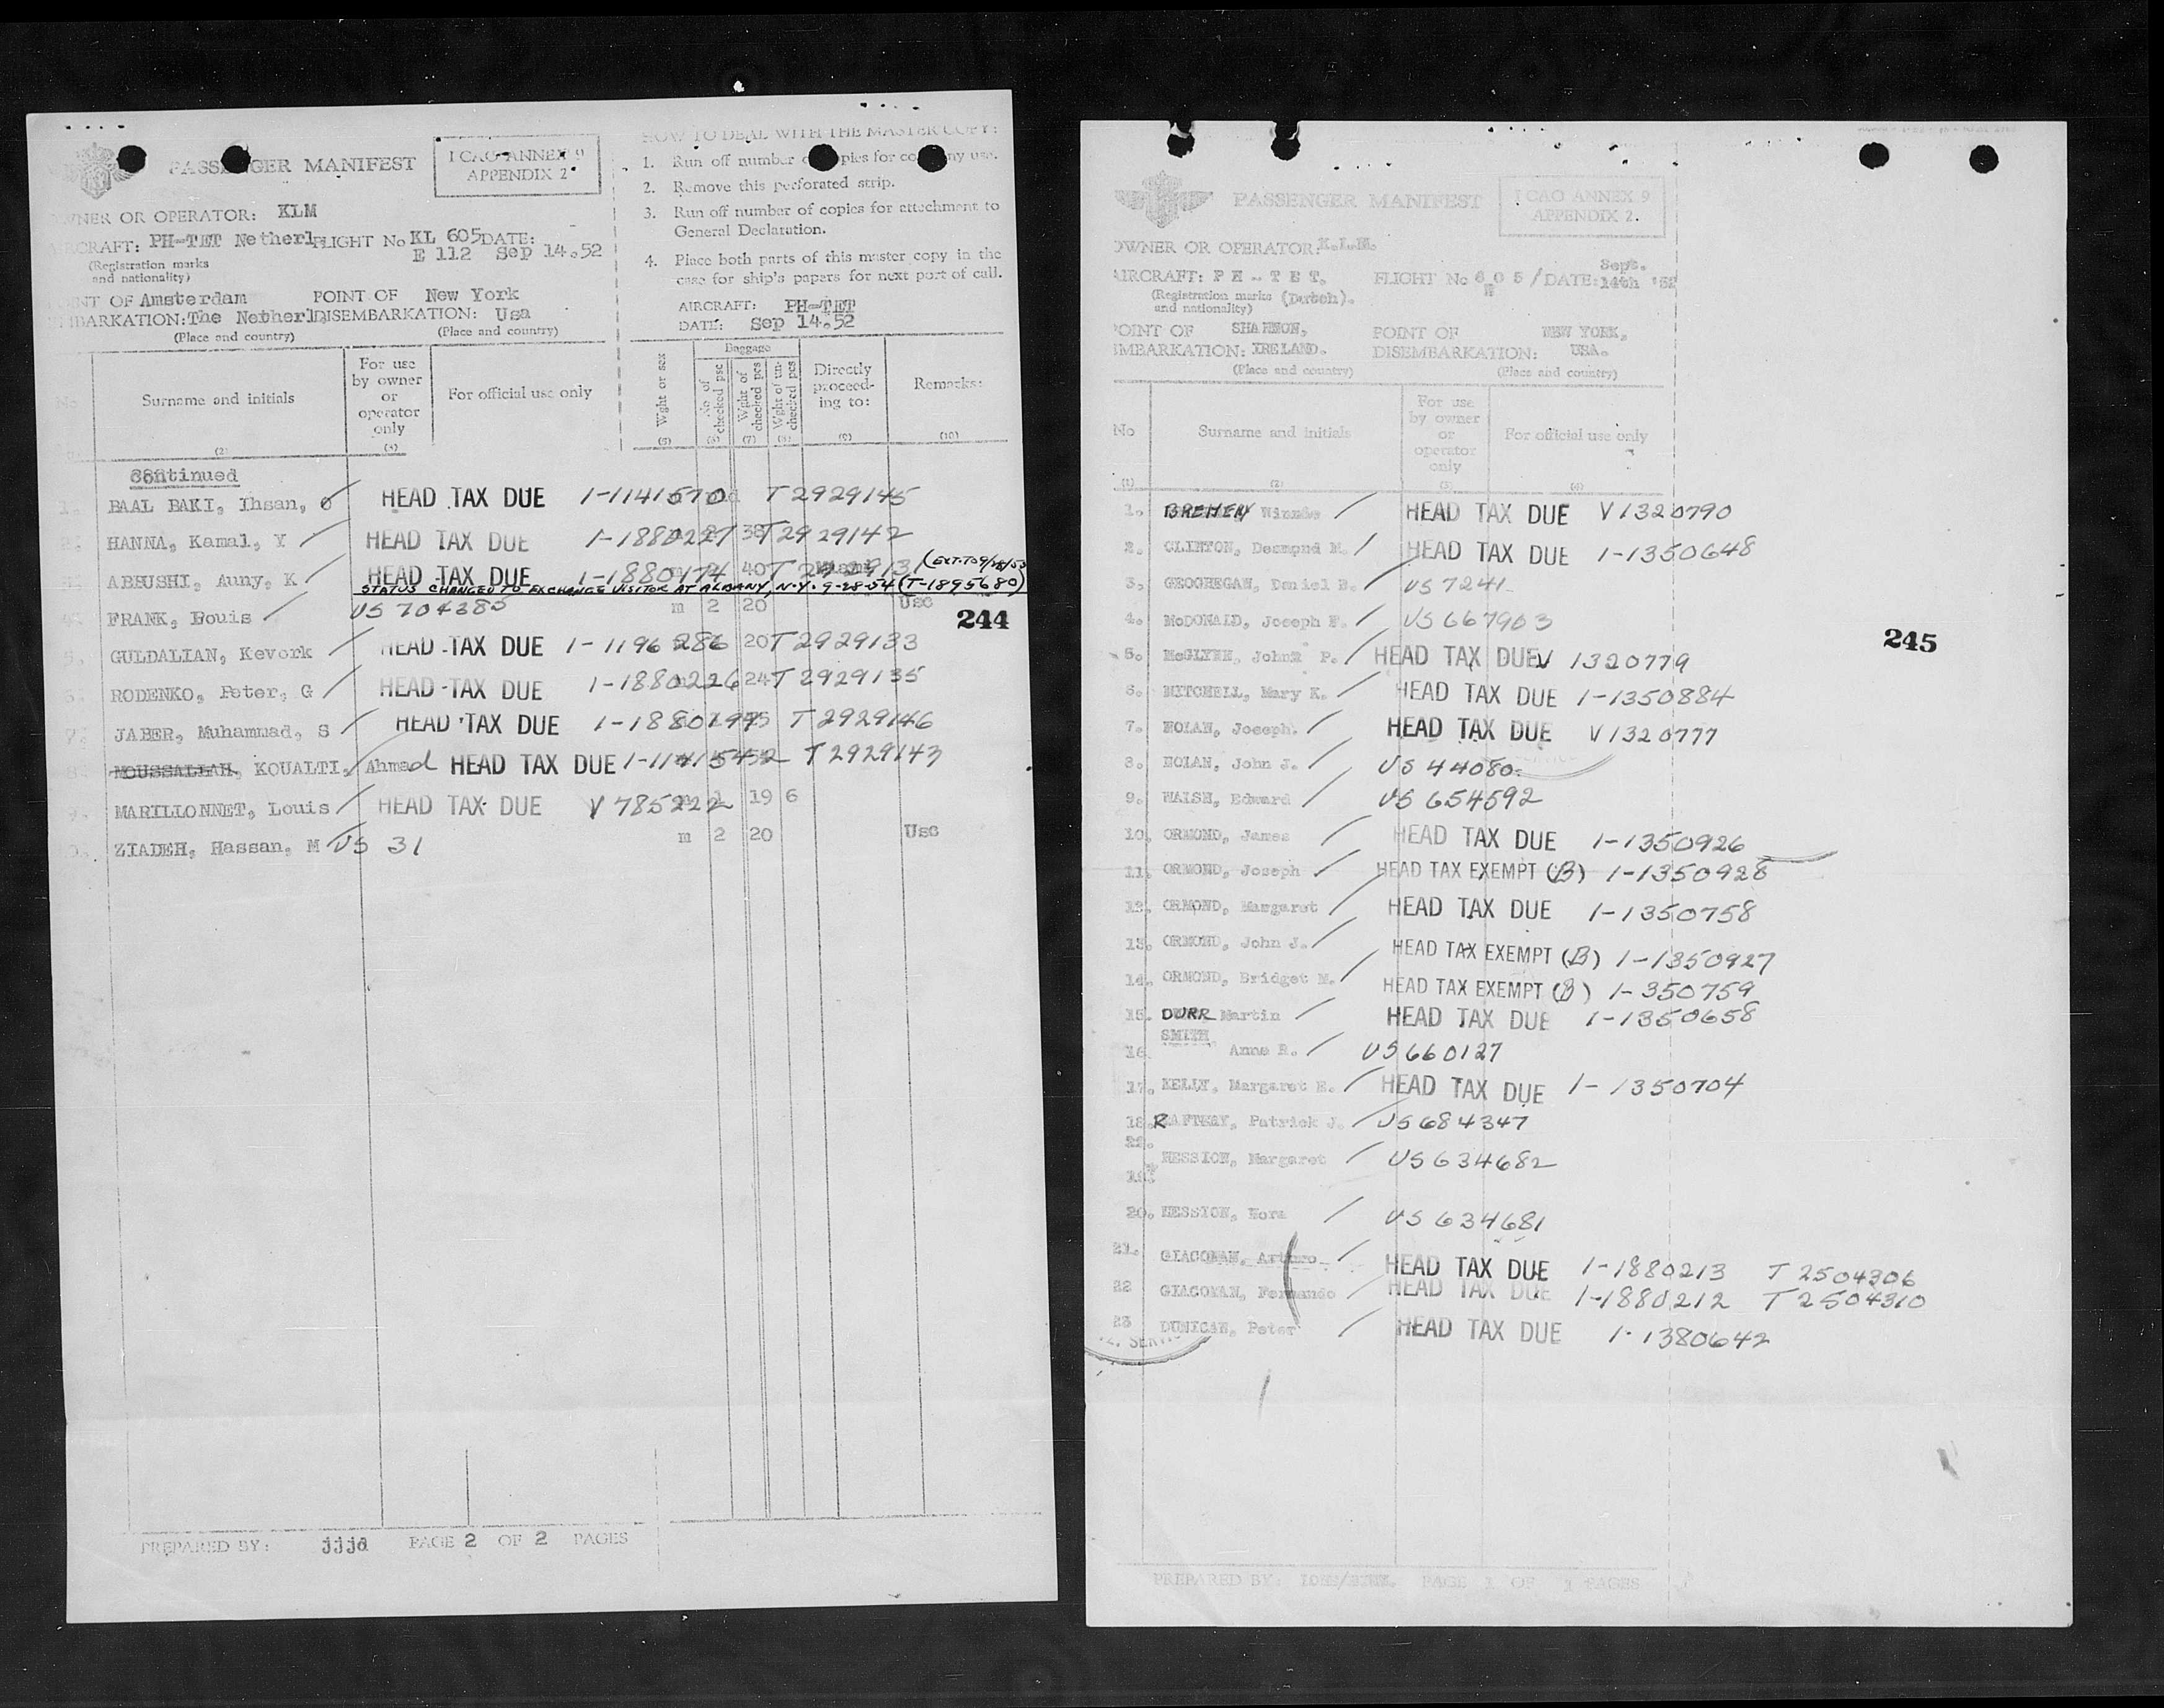 PASSENGER MANIFEST
ICAO ANNEX 9
APPENDIX 2
OWNER OR OPERATOR: KLM
AIRCRAFT: PH-TET Netherl FLIGHT No KL 605 DATE:
E 112 Sep 14.52
(Registration marks
and nationality)
POINT OF Amsterdam POINT OF New York
EMBARKATION: The Netherl DISEMBARKATION: Usa
(Place and country) (Place and country)
Surname and initials
For use
by owner
or
operator
only
For official use only
(2) (3)
HOW TO DEAL WITH THE MASTER COPY:
1. Run off number of copies for company use.
2. Remove this perforated strip.
3. Run off number of copies for attachment to
General Declaration.
4. Place both parts of this master copy in the
case for ship's papers for next port of call.
AIRCRAFT: PH-TET
DATE: Sep 14.52
Baggage
Wght or sex
No of checked pcs
Wght of checked pcs
Wght of un-checked pcs
Directly
proceed-
ing to:
Remarks:
(5) (6) (7) (8) (9) (10)
Continued
BAAL BAKI, Ihsan, HEAD TAX DUE 1-1141570 T2929145
HANNA, Kamal, Y HEAD TAX DUE 1-1880227 38 T2929142
ABSUSHI, Auny, K HEAD TAX DUE 1-1880174 40
STATUS CHANGED TO EXCHANGE VISITOR AT ALBANY, N.Y. 9-28-54 (T-1895680)
FRANK, Louis US 704385 m 2 20 Usc
244
GULDALIAN, Kevork HEAD TAX DUE 1-1196286 20 T2929133
RODENKO, Peter, G HEAD TAX DUE 1-1880226 24 T2929135
JABER, Muhammad, S HEAD TAX DUE T2929146
MOUSSALLAH, KOUALTI, Ahmad HEAD TAX DUE T2929143
MARILLONNET, Louis HEAD TAX DUE V 785222 19 6
ZIADEH, Hassan, M US 31 m 2 20 Usc
PREPARED BY: jjjd PAGE 2 OF 2 PAGES
PASSENGER MANIFEST
ICAO ANNEX 9
APPENDIX 2.
OWNER OR OPERATOR: K.L.M.
AIRCRAFT: PH-TET. FLIGHT No 605/ DATE: Sept. 14th '52
(Registration marks (Dutch).
and nationality)
POINT OF SHANNON, POINT OF NEW YORK,
EMBARKATION: IRELAND. DISEMBARKATION: USA.
(Place and country) (Place and country)
No
Surname and initials
For use
by owner
or
operator
only
For official use only
(1) (2) (3) (4)
1. Winnie HEAD TAX DUE V1320790
2. CLINTON, Desmond M. HEAD TAX DUE 1-1350648
3. GEOGHEGAN, Daniel B. US 7241
4. McDONALD, Joseph F. US 667963
5. McGLYNN, John P. HEAD TAX DUE V 1320779
6. MITCHELL, Mary K. HEAD TAX DUE 1-1350884
7. NOLAN, Joseph. HEAD TAX DUE V1320777
8. NOLAN, John J. US 44080
9. WALSH, Edward US 654592
245
10. ORMOND, James HEAD TAX DUE 1-1350926
11. ORMOND, Joseph HEAD TAX EXEMPT (B) 1-1350928
12. ORMOND, Margaret HEAD TAX DUE 1-1350758
13. ORMOND, John J. HEAD TAX EXEMPT (B) 1-1350927
14. ORMOND, Bridget M. HEAD TAX EXEMPT (B) 1-350759
15. DURR Martin HEAD TAX DUE 1-1350658
SMITH
16. Anna R. US 660127
17. KELLY, Margaret E. HEAD TAX DUE 1-1350704
18. RAFTERY, Patrick J. US 684347
HESSION, Margaret US 634682
19.
20. HESSION, Nora US 634681
21. GIACOMAN, Arturo HEAD TAX DUE 1-1880213 T 2504306
22 GIACOMAN, Fernando HEAD TAX DUE 1-1880212 T 2504310
23 DUNICAN, Peter HEAD TAX DUE 1-1380642
PREPARED BY: PAGE 1 OF 1 PAGES